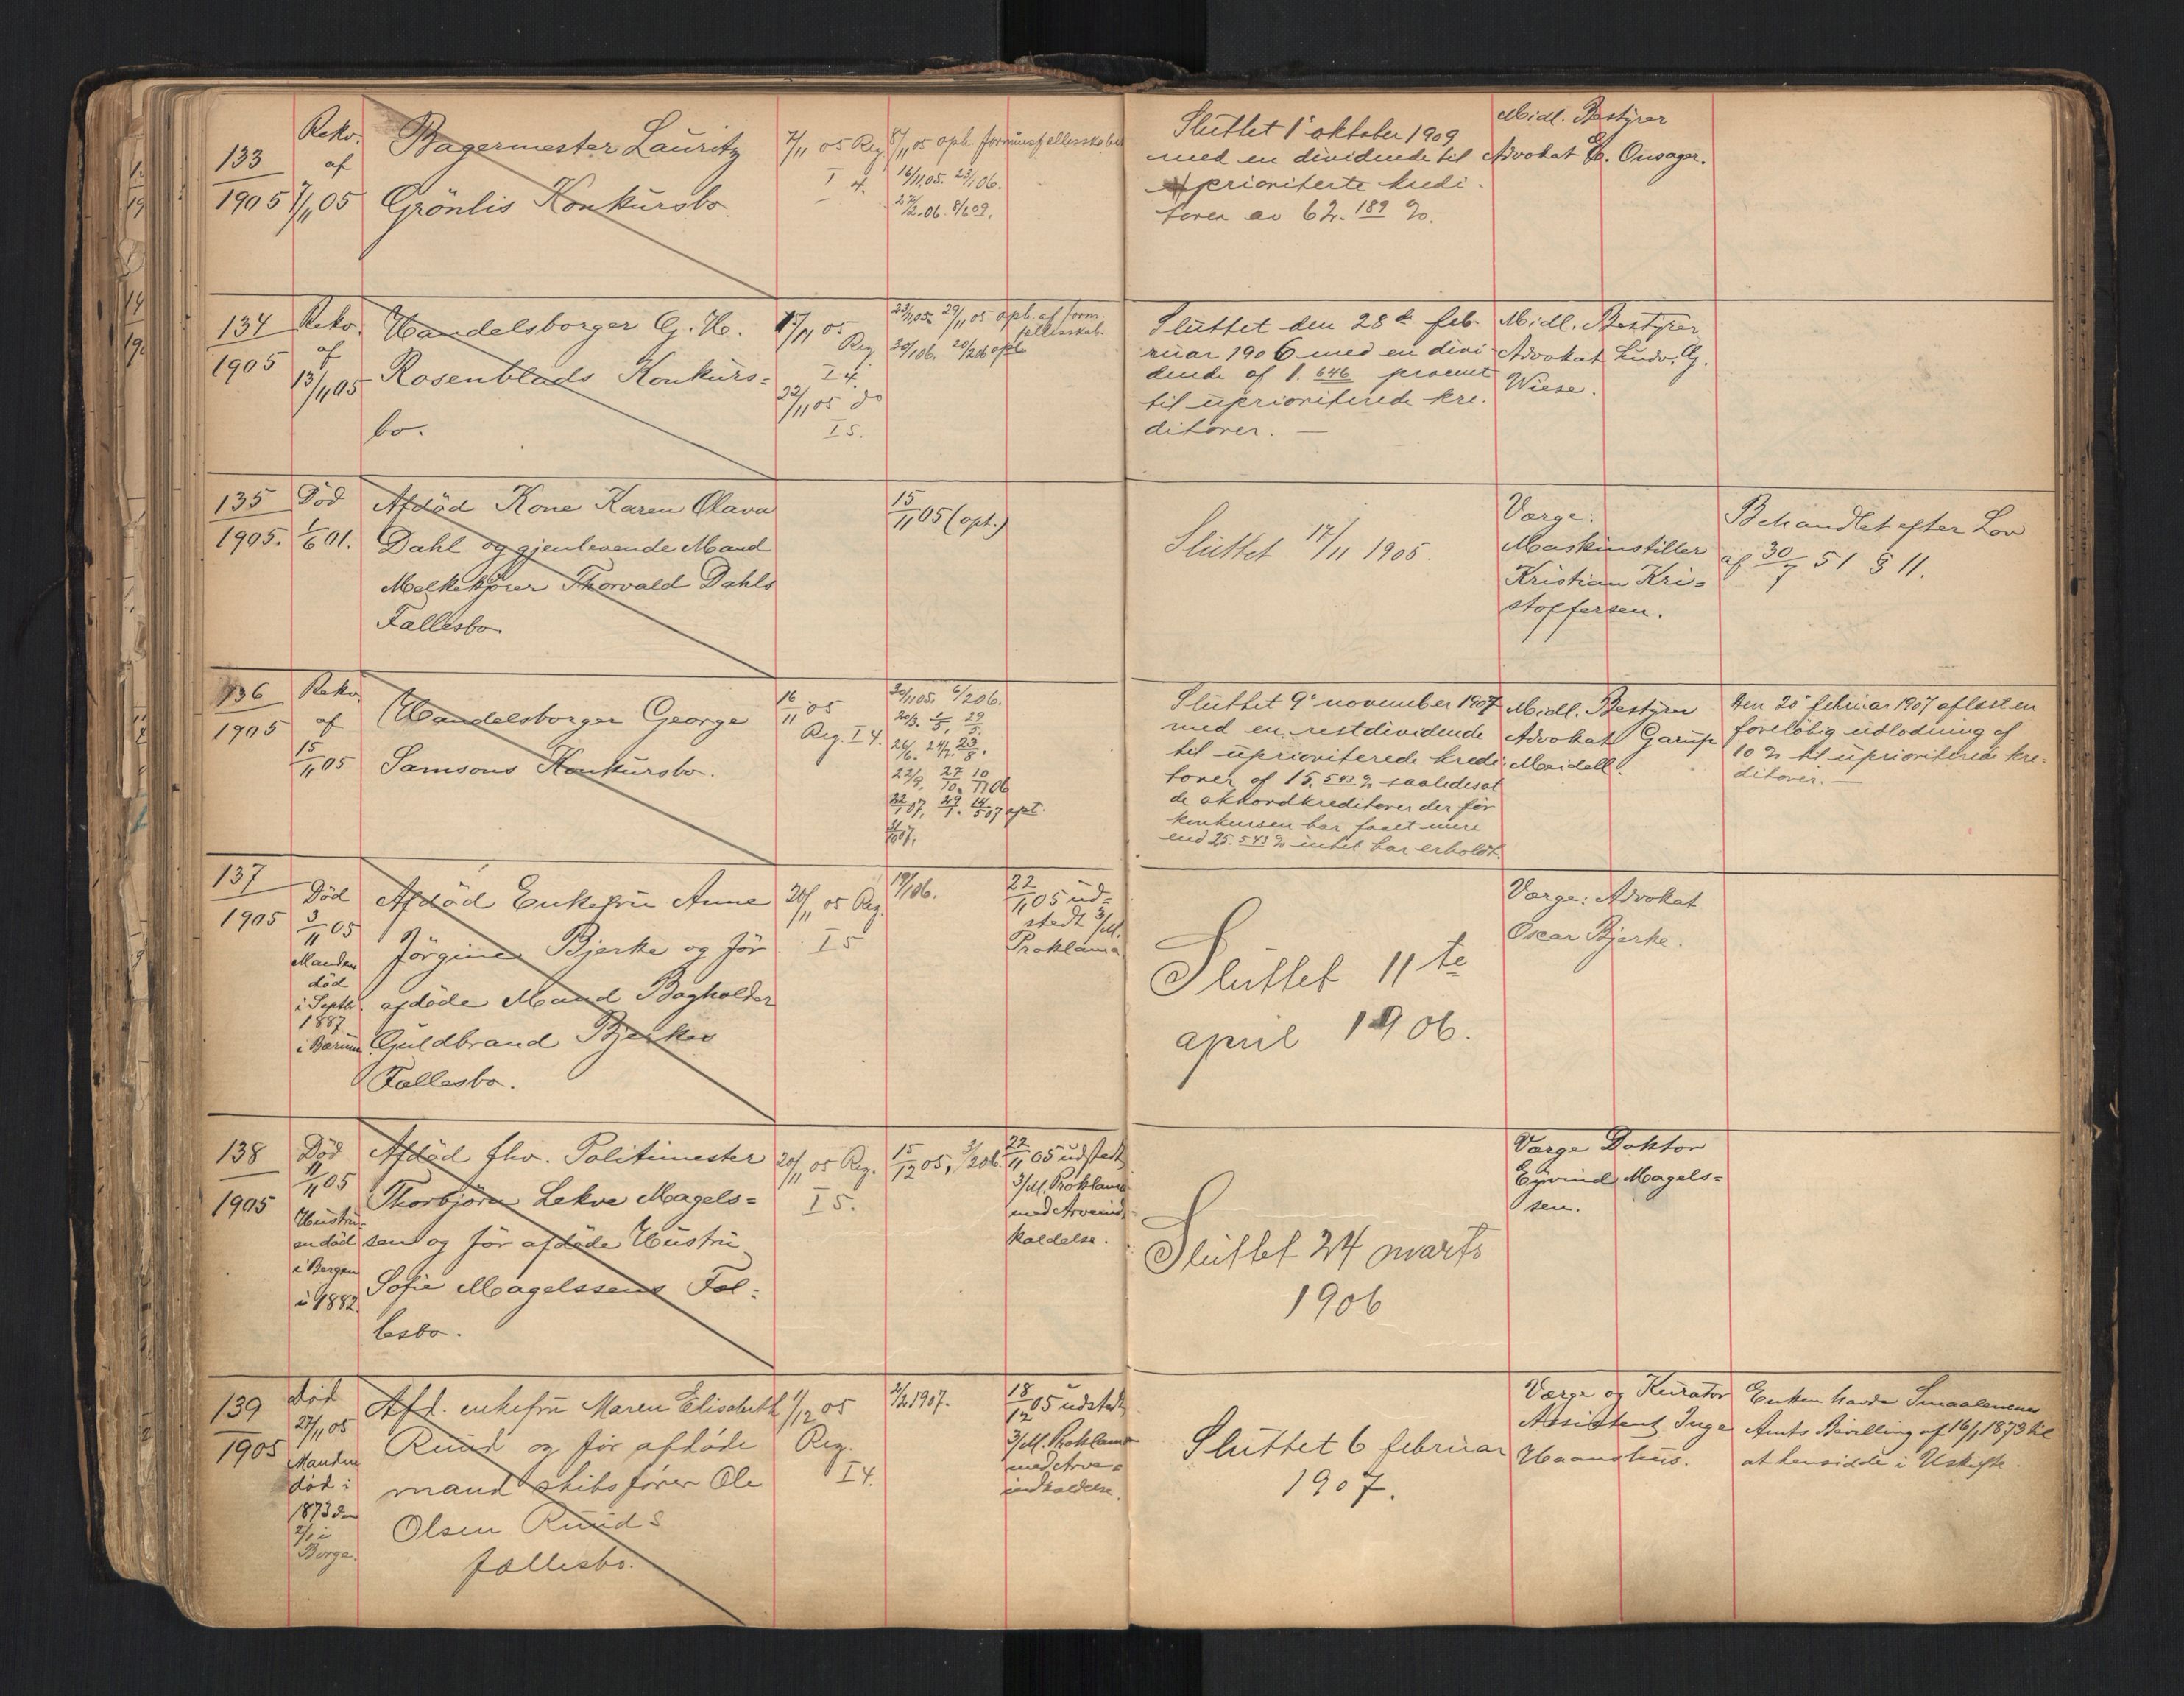 133
1905
Rekv.
af
7/11 05
Bagermester Lauritz
Grönlis Konkursbo.
7/11 05 Reg
I 4.
8/11 05 oph. formuesfællesskabet
16/11 05. 23/1 06.
27/2 06. 8/6 09.
Sluttet 1 oktober 1909
med en dividende til
uprioriterte kredi-
torer av 62.189 %.
Midl. Bestyrer
Advokat E. Onsager.
134
1905
Rekv.
af
13/11 05
Handelsborger G. H.
Rosenblads Konkurs=
bo.
15/11 05
Reg
I 4.
22/11 05 do
I 5.
23/11 05. 29/11 05 oph. af form.
fellesskab.
30/1 06. 20/2 06 opt.
Sluttet den 28de feb-
ruar 1906 med en divi-
dende af 1.646 procent
til uprioriterede kre-
ditorer. —
Midl. Bestyrer
Advokat Ludv. G.
Wiese.
135
1905.
Död
1/6 01.
Afdöd Kone Karen Olava
Dahl og gjenlevende Mand
Melkekjører Thorvald Dahls
Fællesbo.
15/11 05 (opt.)
Sluttet 17/11 1905.
Værge:
Maskinstiller
Kristian Kri=
stoffersen.
Behandlet efter Lov
af 30/7 51 § 11.
136
1905
Rekv.
af
15/11 05
Handelsborger George
Samsons Konkursbo.
16/11 05
Reg. I 4.
30/11 05. 6/2 06.
20/3. 1/5. 29/5.
26/6. 24/7. 23/8.
22/9. 27/10. 10/11 06
22/1 07. 29/1. 14/5 07 opt.
Sluttet 9' november 1907
med en restdividende
til uprioriterede kredi-
torer af 15.543 % saaledes at
de akkordkreditorer der før
konkursen har faaet mere
end 25.543 % intet har erholdt.
Midl. Bestyrer
Advokat Garup
Meidell.
Den 20 februar 1907 aflæst en
foreløbig udlodning af
10 % til uprioriterede kre-
ditorer. —
137
1905
Död
3/11 05
Manden
död
i Septbr.
1887
i Bærum
Afdöd Enkefru Anne
Jörgine Bjerke og för
afdöde Mand Bogholder
Guldbrand Bjerkes
Fællesbo.
20/11 05 Reg.
I 5
19/1 06.
22/11 05 ud=
stedt 3/M.
Proklama
Sluttet 11te
april 1906.
Værge: Advokat
Oscar Bjerke.
138
1905
Död
11/11 05
Hustru-
en död
i Bergen
i 1882.
Afdöd fhv. Politimester
Thorbjörn Lekve Magels=
sen og för afdöde Hustru
Sofie Magelssens Fæl=
lesbo.
20/11 05 Reg.
I 5.
15/12 05, 3/2 06.
22/11 05 udstedt
3/M. Proklama
med Arveind=
kaldelse.
Sluttet 24 marts
1906
Værge Doktor
Eyvind Magels=
sen.
139
1905
Död
27/11 05
Manden
död i
1873 den
2/1 i
Borge.
Afd. enkefru Maren Elisabeth
Ruud og för afdöde
mand skibsfører Ole
Olsen Ruuds
fællesbo.
1/12 05
Reg.
I 4.
2/2 1907.
18/12 05 udstedt
3/M. Proklama
med Arve=
indkaldelse.
Sluttet 6 februar
1907.
Værge og Kurator
Assistent Inge
Haanshus.
Enken havde Smaalenenes
Amts Bevilling af 16/1 1873 til
at hensidde i Uskifte.